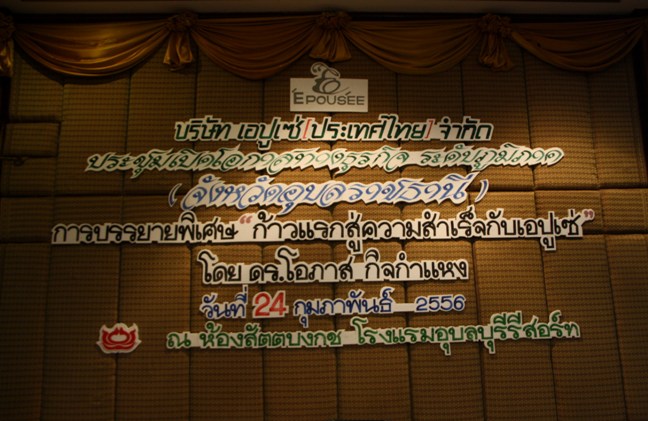 EPOUSÉE
บริษัท เอปูเซ่ [ประเทศไทย] จำกัด
ประชุมเปิดโอกาสทางธุรกิจ ระดับภูมิภาค
( จังหวัดอุบลราชธานี )
การบรรยายพิเศษ " ก้าวแรกสู่ความสำเร็จกับเอปูเซ่ "
โดย ดร.โอภาส กิจกำแหง
วันที่ 24 กุมภาพันธ์ 2556
ณ ห้องสัตตบงกช โรงแรมอุบลบุรีรีสอร์ท